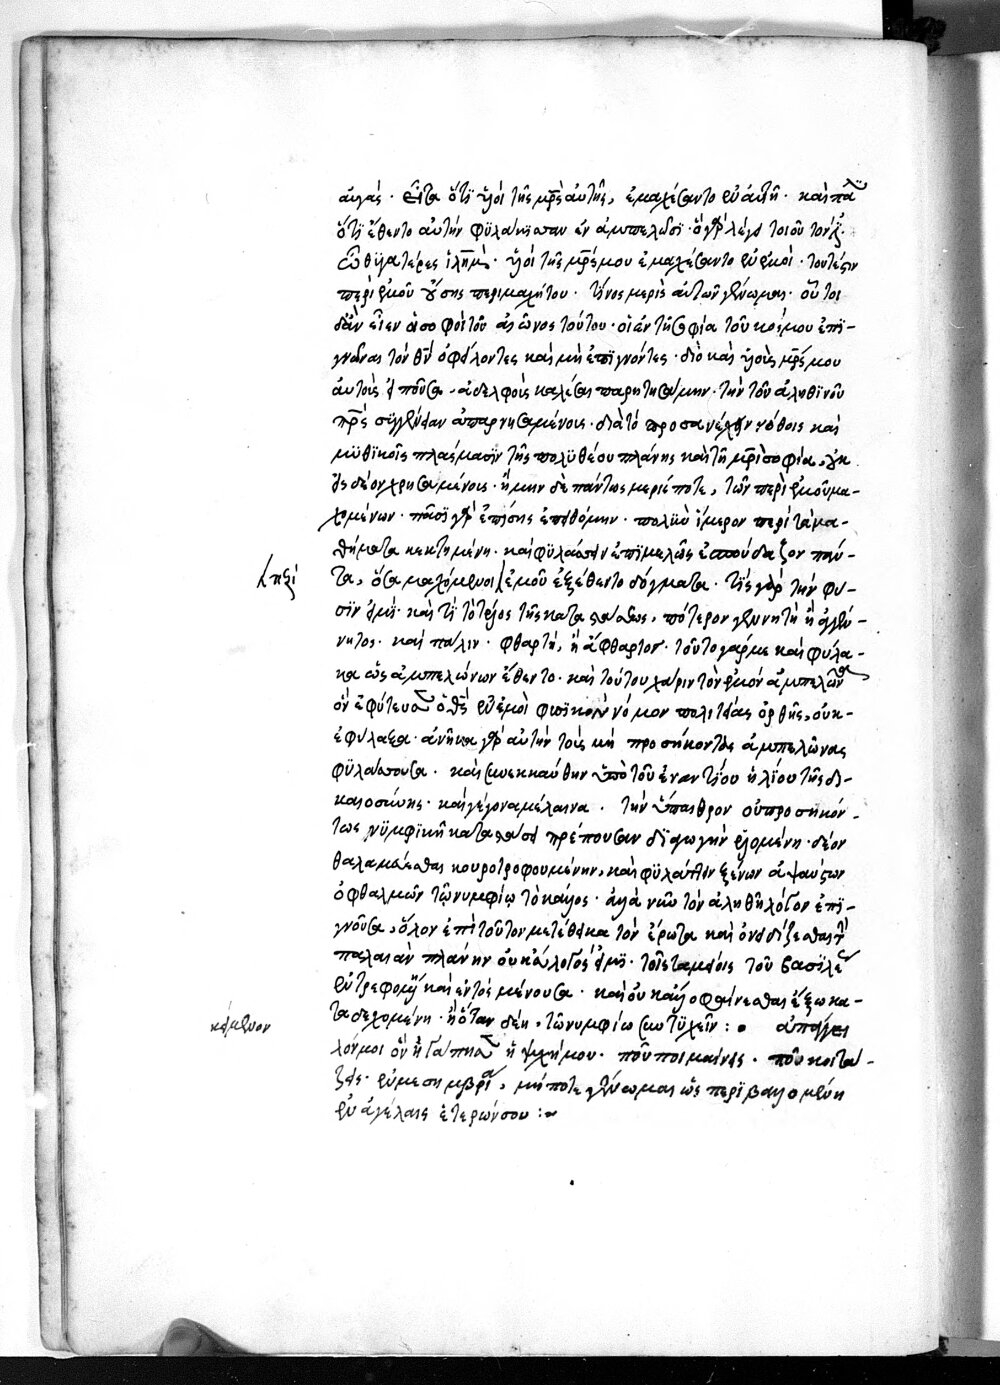 αὐγάς · εἶτα ὅτι υἱοὶ τῆς μρς αὐτῆς, ἐμαχέσαντο ἐν αὐτῇ · καὶ πα
ὅτι ἔθεντο αὐτὴν φυλάκισσαν ἐν ἀμπελῶσι · ὃ γὰρ λέγει τοιοῦτον
ὦ θυγατέρες ἱλημ · υἱοὶ τῆς μρς μου ἐμαχέσαντο ἐν ἐμοί · τουτέστιν
περὶ ἐμοῦ οὔσης περιμαχήτου · τίνος μερὶς αὐτῶν γένωμαι · οὗτοι
δ' ἂν εἶεν οἱ σοφοὶ τοῦ αἰῶνος τούτου · οἱ ἐν τῇ σοφία τοῦ κόσμου ἐπι-
γνῶναι τὸν θν ὀφείλοντες καὶ μὴ ἐπιγνόντες · διὸ καὶ υἱοὺς μρς μου
αὐτοὺς εἰποῦσα, ἀδελφοὺς καλέσαι παρῃτησάμην · τὴν τοῦ ἀληθινοῦ
πρς συγγένειαν ἀπαρνησαμένους · διὰ τὸ προσανέχειν νόθοις καὶ
μυθικοῖς πλάσμασιν τῆς πολυθέου πλάνης καὶ τῇ μρὶ σοφία, οὐκ
εἰς δέον χρησαμένους · ἤμην δὲ πάντως μερίς ποτε, τῶν περὶ ἐμοῦ μα-
χομένων · πᾶσι γὰρ ἐπίσης ἐπειθόμην · πολὺν ἵμερον περὶ τὰ μα-
θήματα κεκτημένη · καὶ φυλάσσειν ἐπιμελῶς ἐσπούδαζον πάν-
τα, ὅσα μαχόμενοι ἐμοῦ ἐξέθεντο δόγματα · τίς γὰρ τὴν φύ-
σιν εἰμὶ · καὶ τί τὸ τέλος τῆς καταστάσεως, πότερον γεννητὴ ἢ ἀγέν-
νητος · καὶ πάλιν · φθαρτή, ἢ ἄφθαρτος · τοῦτο γάρ με καὶ φύλα-
κα ὡς ἀμπελώνων ἔθεντο · καὶ τούτου χάριν τὸν ἐμὸν ἀμπελῶνα
ὃν ἐφύτευσεν ὁ θς ἐν ἐμοὶ φυσικὸν νόμον πολιτείας ὀρθῆς, οὐκ-
ἐφύλαξα · ἀνῆκα γὰρ αὐτὴν τοὺς μὴ προσήκοντας ἀμπελῶνας
φυλάττουσα · καὶ συνεκαύθην ὑπὸ τοῦ ἐναντίου ἡλίου τῆς δι-
καιοσύνης · καὶ γέγονα μέλαινα · τὴν ὕπαιθρον οὐ προσηκόν-
τως νυμφικῇ καταστάσει πρέπουσαν διαγωγὴν ἑλομένη · δέον
θαλαμεύεσθαι κουροτροφουμένην, καὶ φυλάττειν ξένων ἄψαυστον
ὀφθαλμῶν τῷ νυμφίῳ τὸ κάλλος · ἀλλὰ νῦν τὸν ἀληθῆ λόγον ἐπι-
γνοῦσα, ὅλον ἐπὶ τοῦτον μετέθηκα τὸν ἔρωτα καὶ ὀνειδίζεσθαι τὴν
παλαιὰν πλάνην οὐκ ἄλογός εἰμι · τοῖς ταμείοις τοῦ βασιλέως
ἐντρεφομένη καὶ ἐντὸς μένουσα · καὶ οὐκ ἄλλο φαίνεσθαι ἔξω κα-
ταδεχομένη · ἢ ὅταν δέῃ, τῷ νυμφίω συντυχεῖν : • ἀπάγγει
λόν μοι ὃν ἠγάπησεν ἡ ψυχή μου · ποῦ ποιμαίνεις · ποῦ κοιτά-
ζεις · ἐν μεσημβρία, μήποτε γένωμαι ὡς περιβαλλομένη
ἐν ἀγέλαις ἑτερων σου : ~
περὶ
κείμενον